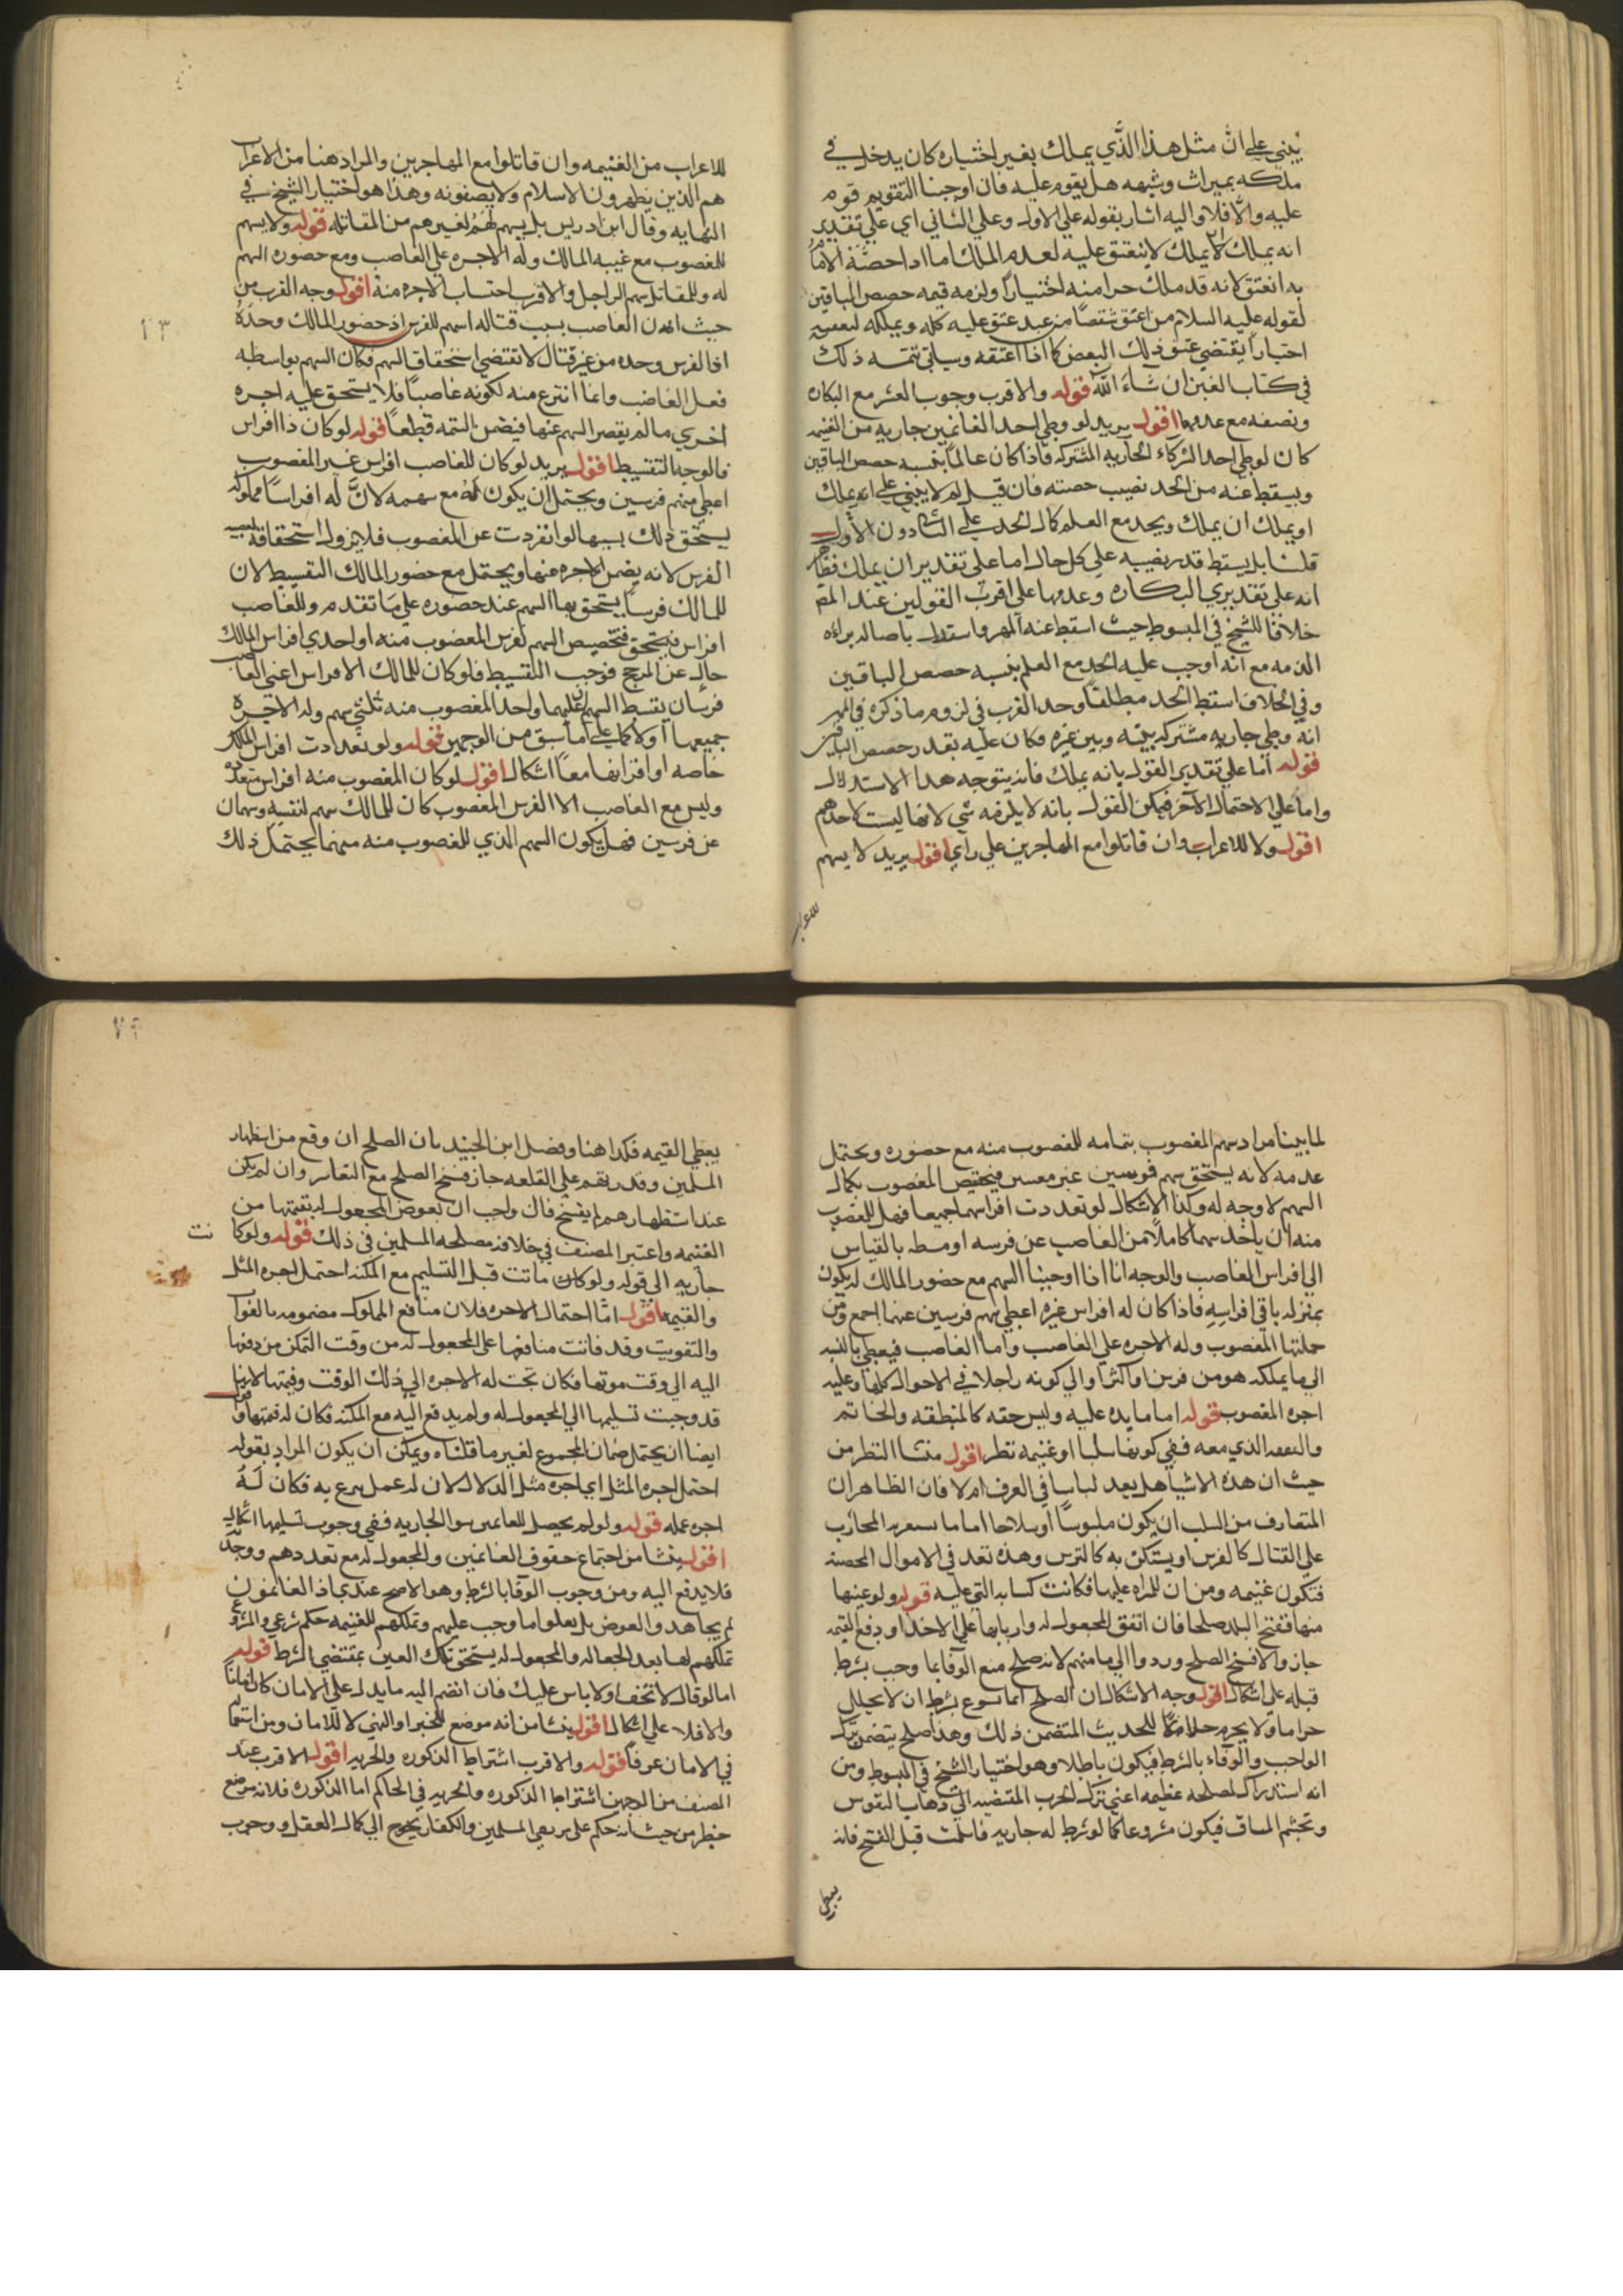 يبني علي ان مثل هذا الذي يملك بغير اختياره كان يدخل في
ملكه بميراث وشبهه هل يقوم عليه فان اوجبنا التقويم قوم
عليه والا فلا واليه اشار بقوله علي الاول وعلي الثاني اي علي تقدير
انه يملك لا يملك لا ينعتق عليه لعدم الملك اما اذا حصته الامام
به انعتق لانه قد ملك حرا منه اختيارا ولزمه قيمه حصص الباقين
لقوله عليه السلام من اعتق شقصا من عبد عتق عليه كله وتملكه لبعضه
اختيارا يقتضي عتق ذلك البعض كما اذا اعتقه وسياتي تتمه ذلك
في كتاب العين ان شاء الله قوله والاقرب وجوب العشر مع البكاره
ونصفه مع عدمها اقول يريد لو وطي احد الغانمين جاريه من الغنيمه
كان لوطي احد الشركاء الجاريه المشتركه فاذا كان عالما بنفسه حصص الباقين
ويسقط عنه من الحد نصيب حصته فان قيل لم لا يبني علي انه يملك
او يملك ان يملك ويحد مع العلم كال الحد علي الثاني دون الاول
قلنا بل يسقط قدر نصيبه علي كل حال اما علي تقدير ان يملك فظاهر
انه علي تقديري البكاره وعدمها علي اقرب القولين عند المص
خلافا للشيخ في المبسوط حيث اسقط عنه المهر واستدل باصاله براءه
الذمه مع انه اوجب عليه الحد مع العلم بنسبه حصص الباقين
وفي الخلاف اسقط الحد مطلقا وحد القرب في لزوم ما ذكره في المهر
انه وطي جاريه مشتركه بينه وبين غيره فكان عليه بقدر حصص الباقين
قوله اما علي تقدير القول بانه يملك فانه يتوجه هذا الاستدلال
واما علي الاحتمال الآخر فيمكن القول بانه لا يلزمه شي لانها ليست لاحدهم
اقول ولا للاعراب وان قاتلوا مع المهاجرين علي راي اقول يريد لا يسهم
للاعراب من الغنيمه وان قاتلوا مع المهاجرين والمراد هنا من الاعراب
هم الذين يظهرون الاسلام ولا يصفونه وهذا هو اختيار الشيخ في
النهايه وقال ابن ادريس بل يسهم لهم لغيرهم من المقاتله قوله ولا يسهم
للمغصوب مع غيبه المالك وله الاجره علي الغاصب ومع حصوره السهم
له وللمقاتل سهم الراجل والاقرب احتساب الاجره منه اقول وجه القرب من
حيث ان الغاصب بسبب قتاله اسهم للفرس اذ حضور المالك وحده
اذا الفرس وحده من غير قتال لا تقتضي استحقاق السهم فكان السهم بواسطه
فعل الغاصب وانما انتزع منه لكونه غاصبا فلا يستحق عليه اجره
اخري ما لم يقصر السهم عنها فيضمن التتمه قطعا قوله لو كان ذا افراس
فالوجه التقسيط اقول يريد لو كان للغاصب افراس غير المغصوب
اعطي منهم فرسين ويحتمل ان يكون له مع سهمه لان له افراسا مملوكه
يستحق ذلك بسببها لو انفردت عن المغصوب فلا يزول استحقاقه
الفرس لانه يضمن الاجره عنها ويحتمل مع حضور المالك التقسيط لان
للمالك فرسا يستحق بها السهم عند حصوره علي ما تقدم وللغاصب
افراس يستحق فتخصيص السهم لفرس المغصوب منه او احدي افراس المالك
حال عن المرجح فوجب التقسيط فلو كان للمالك الافراس اعني الغاصب
فرسان يقسط السهم عليهما ولحد المغصوب منه ثلثي سهم وله الاجره
جميعها اولا كما علي ما سبق من الوجهين قوله ولو تعددت افراس المالك
خاصه او افراسهما معا اشكال اقول لو كان المغصوب منه افراس متعدده
وليس مع الغاصب الا الفرس المغصوب كان للمالك سهم لنفسه وسهمان
عن فرسين فهل يكون السهم الذي للمغصوب منه سهمهما يحتمل ذلك
لما بينا مراد سهم المغصوب بتمامه للمغصوب منه مع حضوره ويحتمل
عدمه لانه يستحق سهم فرسين غير معينين فتخصيص المغصوب بكمال
السهم لا وجه له وكذا الاشكال لو تعددت افراسهما جميعا فهل للمغصوب
منه ان ياخذ سهما كاملا من الغاصب عن فرسه او بسطه بالقياس
الي افراس الغاصب والوجه انا اذا اوجبنا السهم مع حضور المالك له يكون
بمنزله باقي افراسه فاذا كان له افراس غيره اعطي سهم فرسين عنها اجمع ومن
جملتها المغصوب وله الاجره علي الغاصب واما الغاصب فيعطي بالنسبه
الي ما يملكه هو من فرس او اكثر او الي كونه راجلا في الاحوال كلها وعليه
اجره المغصوب قوله اما ما يده عليه وليس حقه كالمنطقه والخاتم
والنفقه الذي معه ففي كونها سلبا او غنيمه نظر اقول منشا النظر من
حيث ان هذه الاشيا هل يعد لباسا في العرف ام لا فان الظاهر ان
المتعارف من السلب ان يكون ملبوسا او سلاحا اما ما يستعين به المحارب
علي القتال كالفرس او يستكن به كالترس وهذه تعد في الاموال المحضه
فتكون غنيمه ومن ان للمراه عليها فكانت كسائر التي عليه قوله ولو عينها
منها ففتح البلد صلحا فان اتفق المجعول له واربابها علي الاخذ او دفع القيمه
جاز والا فسخ الصلح وردوا الي مامنهم لانه صلح منع الوفا بما وجب بشرط
قبله علي اشكال اقول وجه الاشكال ان الصلح انما يسوغ بشرط ان لا يحلل
حراما ولا يحرم حلالا للحديث المتضمن ذلك وهذا صلح يتضمن ترك
الواجب والوفاء بالشرط فيكون باطلا وهو اختيار الشيخ في المبسوط ومن
انه استدراك لمصلحه عظيمه اعني ترك الحرب المتضمنه الي ذهاب النفوس
وتجشم المساق فيكون مشروعا كما لو شرط له جاريه فاسلمت قبل الفتح فانه
يعطي القيمه فكذا هنا وفضل ابن الجنيد بان الصلح ان وقع من استظهار
المسلمين وقدرتهم علي القلعه جاز فسخ الصلح مع التعاسر وان لم يكن
عند استظهارهم لم يفسخ قال ولجب ان يعوض المجعول له بقيمتها من
الغنيمه واعتبر المصنف في خلافه مصلحه المسلمين في ذلك قوله ولو كانت
جاريه الي قوله ولو كان ماتت قبل التسليم مع المكنه احتمل اجره المثل
والقيمه اقول اما احتمال الاجره فلان منافع المملوك مضمونه بالفوات
والتفويت وقد فاتت منافعها علي المجعول له من وقت التمكن من دفعها
اليه الي وقت موتها فكان تحت له الاجره الي ذلك الوقت وقيمتها لانها
قد وجبت تسليمها الي المجعول له ولم يدفع اليه مع المكنه فكان له قيمتها
ايضا ان يحتمل ضمان المجموع لغير ما قلناه ويمكن ان يكون المراد بقوله
احتمل اجره المثل اي اجره مثل الدلال لان له عمل يبرع به فكان له
اجره عمله قوله ولو لم يحصل للغانمين سوا الجاريه ففي وجوب تسليمها اشكال
اقول ينشا من اجتماع حقوق الغانمين والمجعول له مع تعددهم ووحدته
فلا يدفع اليه ومن وجوب الوفا بالشرط وهو الاصح عندي اذ الغانمون
لم يجاهدوا لعوض بل فعلوا ما وجب عليهم وتملكهم للغنيمه حكم شرعي والمشروع
تملكهم لها بعد الجعاله والمجعول له يستحق تلك العين بمقتضي الشرط قوله
اما لو قال لا تخف او لا باس عليك فان انضم اليه ما يدل علي الامان كان امانا
والا فلا علي اشكال اقول ينشا من انه موضع للخبر او النهي لا للامان ومن استعماله
في الامان عرفا قوله والاقرب اشتراط الذكوره والحريه اقول الاقرب عند
المصنف من الوجهين اشتراط الذكوره والحريه في الحاكم اما الذكوره فلانه موضع
خطر من حيث انه حكم علي المسلمين والكفار يحوج الي كمال العقل ووجوب